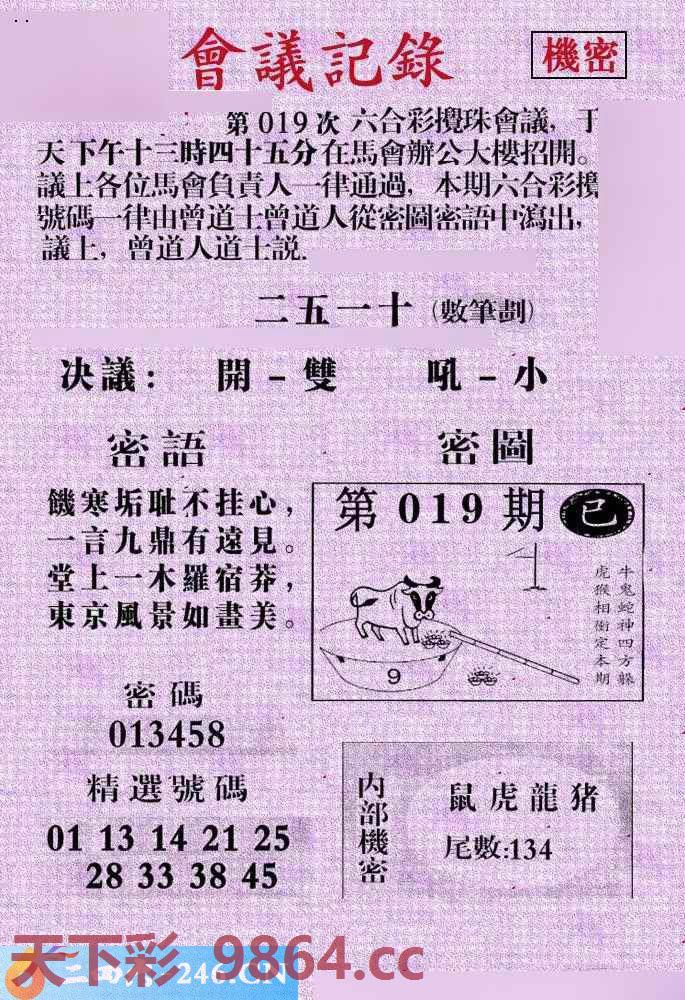 會議記錄
機密
第019次 六合彩攪珠會議，于
天下午十三時四十五分在馬會辦公大樓招開。
議上各位馬會負責人一律通過，本期六合彩攪
號碼一律由曾道士曾道人從密圖密語中瀉出，
議上，曾道人道士説.
二五一十（數筆劃）
决議： 開－雙 吼－小
密語
饑寒垢耻不挂心，
一言九鼎有遠見。
堂上一木羅宿莽，
東京風景如畫美。
密圖
第019期 已
牛鬼蛇神四方躲
虎猴相衝定本期
9
密碼
013458
精選號碼
01 13 14 21 25
28 33 38 45
内部機密
鼠虎龍猪
尾數:134
天下彩 9864.cc
246.CN